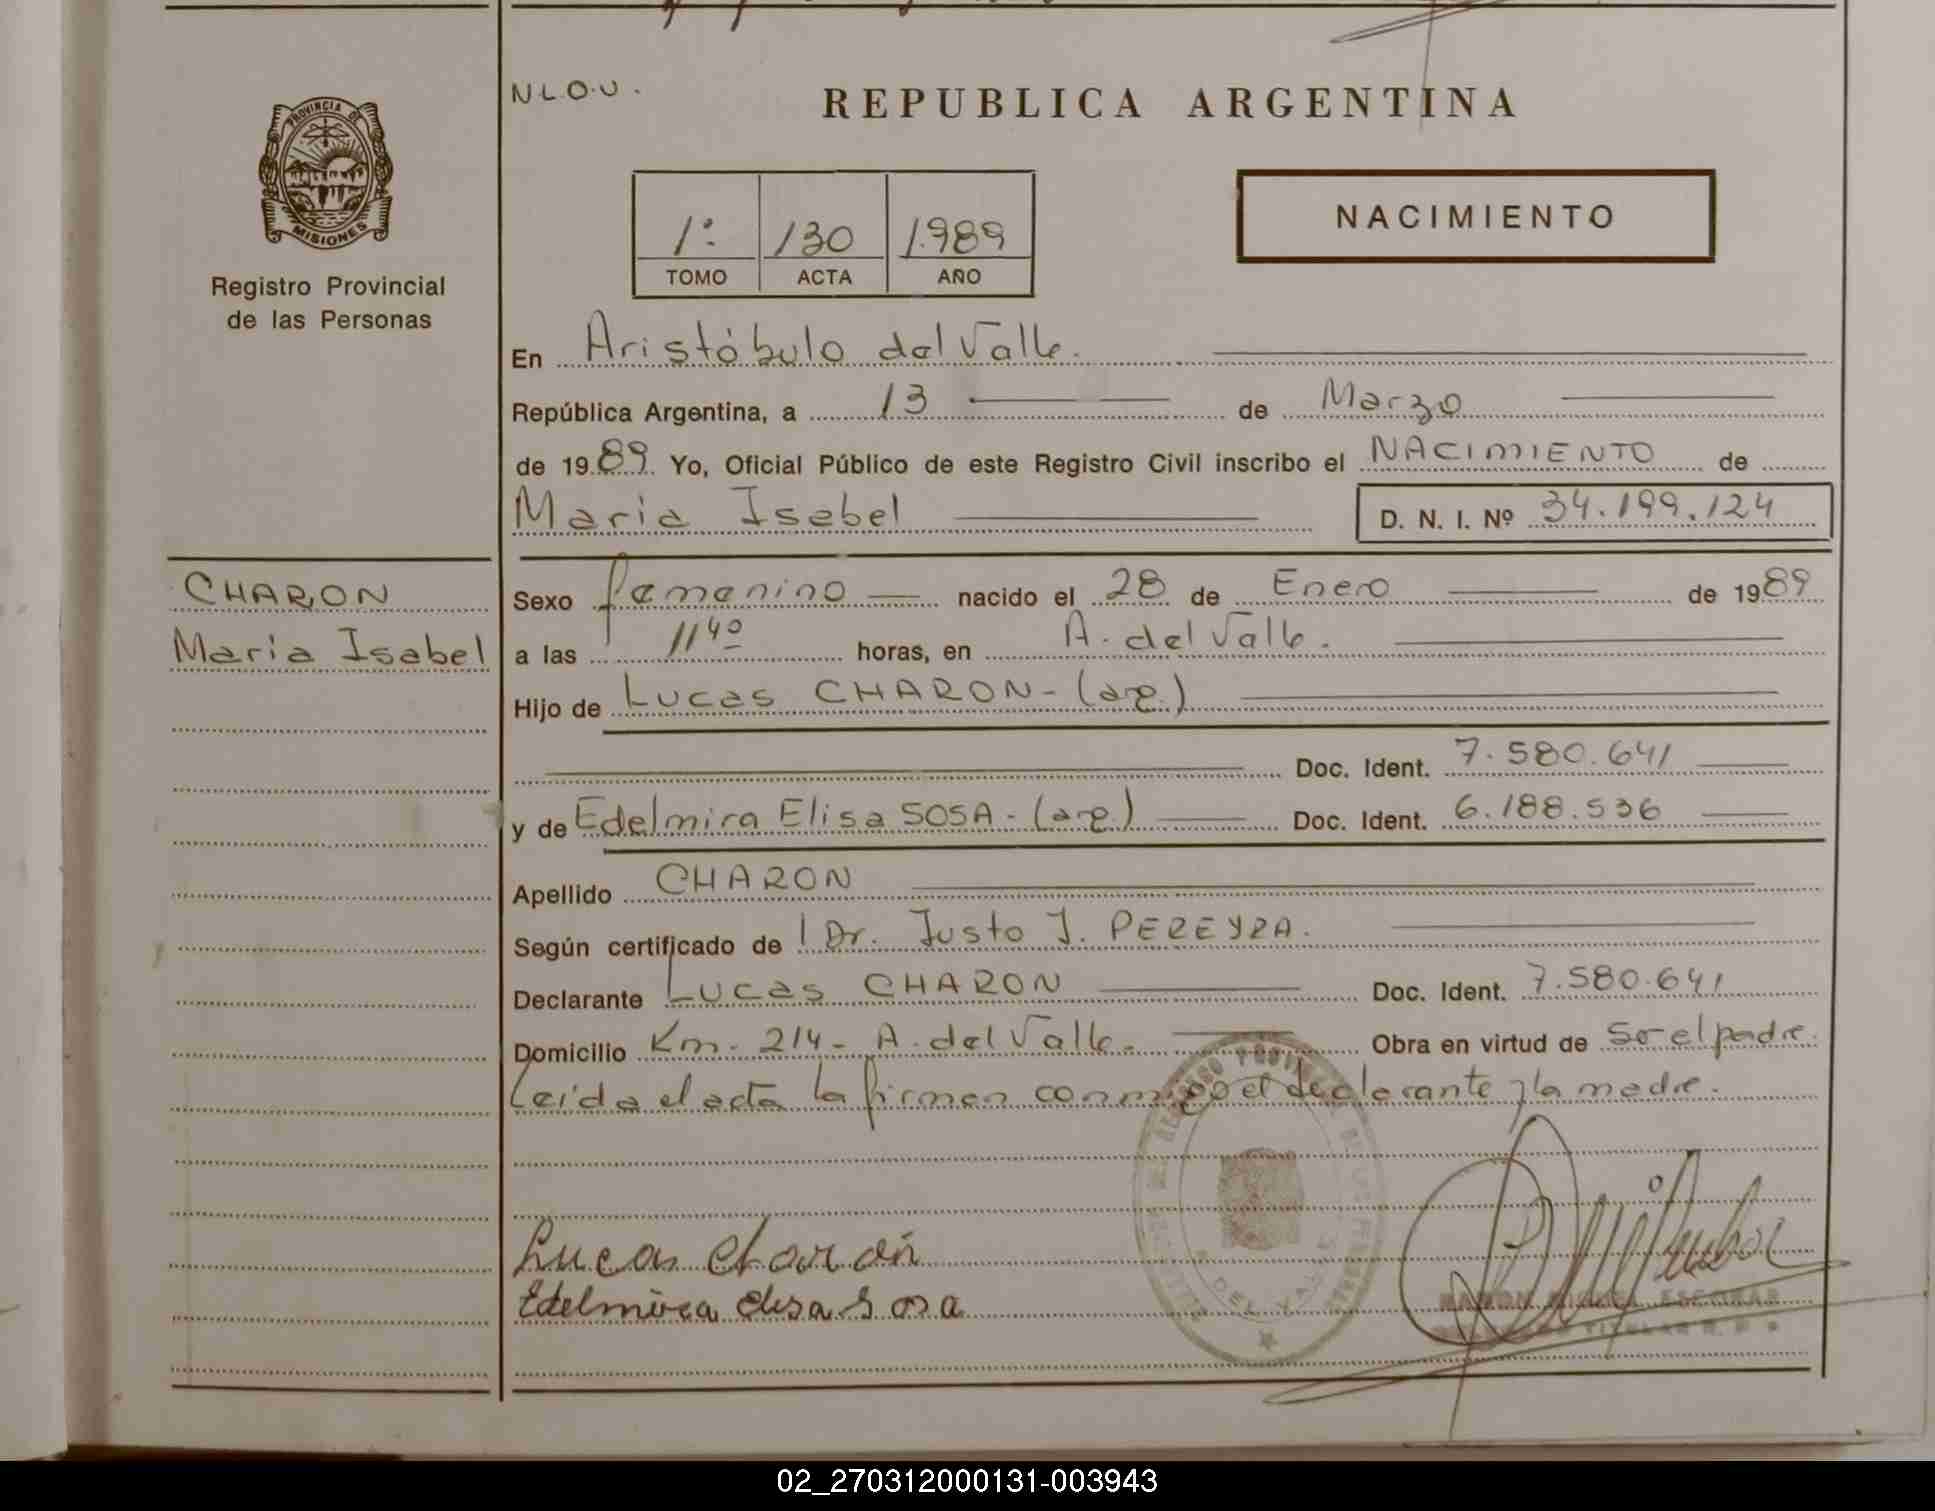 N.L.O.U.
REPUBLICA ARGENTINA
PROVINCIA DE
MISIONES
Registro Provincial
de las Personas
1º 130 1.989
TOMO ACTA AÑO
NACIMIENTO
En Aristóbulo del Valle.
República Argentina, a 13 de Marzo
de 1989 Yo, Oficial Público de este Registro Civil inscribo el NACIMIENTO de
Maria Isabel D. N. I. Nº 34.199.124
CHARON
Maria Isabel
Sexo femenino nacido el 28 de Enero de 1989
a las 11⁴⁰ horas, en A. del Valle.
Hijo de Lucas CHARON - (arg.)
Doc. Ident. 7.580.641
y de Edelmira Elisa SOSA - (arg.) Doc. Ident. 6.188.536
Apellido CHARON
Según certificado de l Dr. Justo J. PEREYRA.
Declarante Lucas CHARON Doc. Ident. 7.580.641
Domicilio Km. 214 - A. del Valle. Obra en virtud de ser el padre.
Leída el acta la firman conmigo el declarante y la madre.
Lucas Charón
Edelmira elisa Sosa
DEL VALLE
RAMON MIGUEL ESCOBAR
TITULAR R. P.
02_270312000131-003943